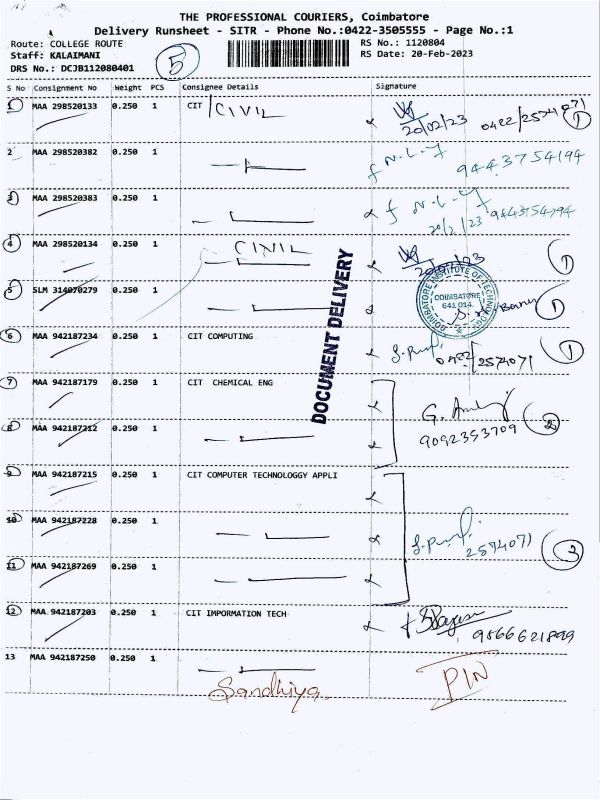 THE PROFESSIONAL COURIERS, Coimbatore
Delivery Runsheet - SITR - Phone No.:0422-3505555 - Page No.:1
Route: COLLEGE ROUTE RS No.: 1120804
Staff: KALAIMANI RS Date: 20-Feb-2023
DRS No.: DCJB112080401
5
S No Consignment No Weight PCS Consignee Details Signature
1 MAA 298520133 0.250 1 CIT / CIVIL
20/02/23 0422/2574071 1
2 MAA 298520382 0.250 1
9443754194
3 MAA 298520383 0.250 1
20/2/23 9443754794
4 MAA 298520134 0.250 1 CIVIL
1
5 SLM 314070279 0.250 1
COIMBATORE INSTITUTE OF TECHNOLOGY
COIMBATORE
641 014.
1
DOCUMENT DELIVERY
6 MAA 942187234 0.250 1 CIT COMPUTING
0422/2574071 1
7 MAA 942187179 0.250 1 CIT CHEMICAL ENG
8 MAA 942187212 0.250 1
9092353709 2
9 MAA 942187215 0.250 1 CIT COMPUTER TECHNOLOGGY APPLI
10 MAA 942187228 0.250 1
2574071 3
11 MAA 942187269 0.250 1
12 MAA 942187203 0.250 1 CIT IMPORMATION TECH
9566621899
13 MAA 942187250 0.250 1
Sandhiya PIN